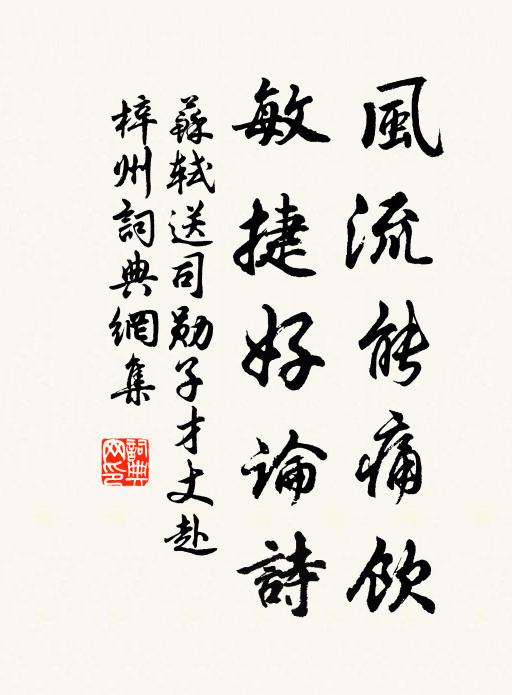 風流能痛飲
敏捷好論詩
蘇軾送司勛子才丈赴
梓州詞典網集
詞典
网印